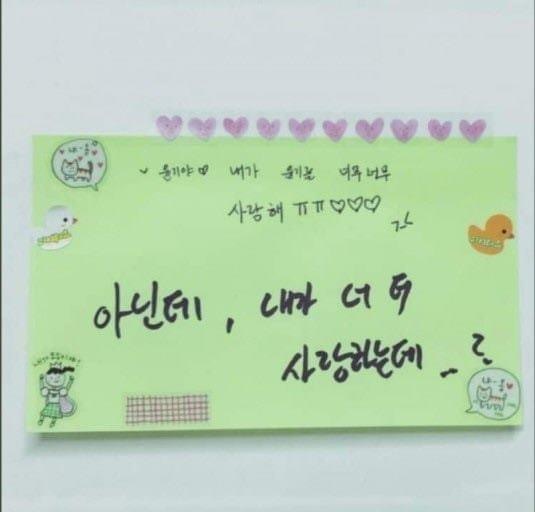 나-옹
윤기야♡ 내가 윤기를 너무너무
사랑해 ㅠㅠ♡♡♡
아닌데, 내가 너 더
사랑하는데..
나-옹